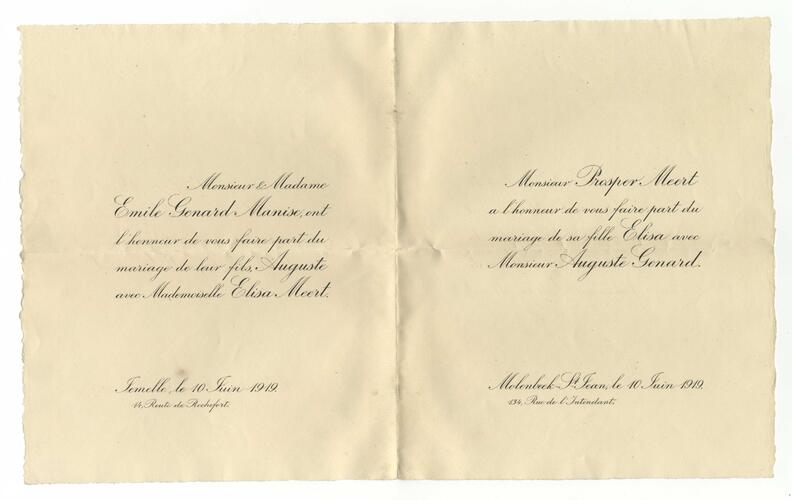 Monsieur & Madame
Emile Genard Manise, ont
l'honneur de vous faire part du
mariage de leur fils, Auguste
avec Mademoiselle Elisa Meert.
Jemelle, le 10 Juin 1919.
14, Route de Rochefort.
Monsieur Prosper Meert
a l'honneur de vous faire part du
mariage de sa fille Elisa avec
Monsieur Auguste Genard.
Molenbeek-St Jean, le 10 Juin 1919.
134, Rue de l'Intendant.